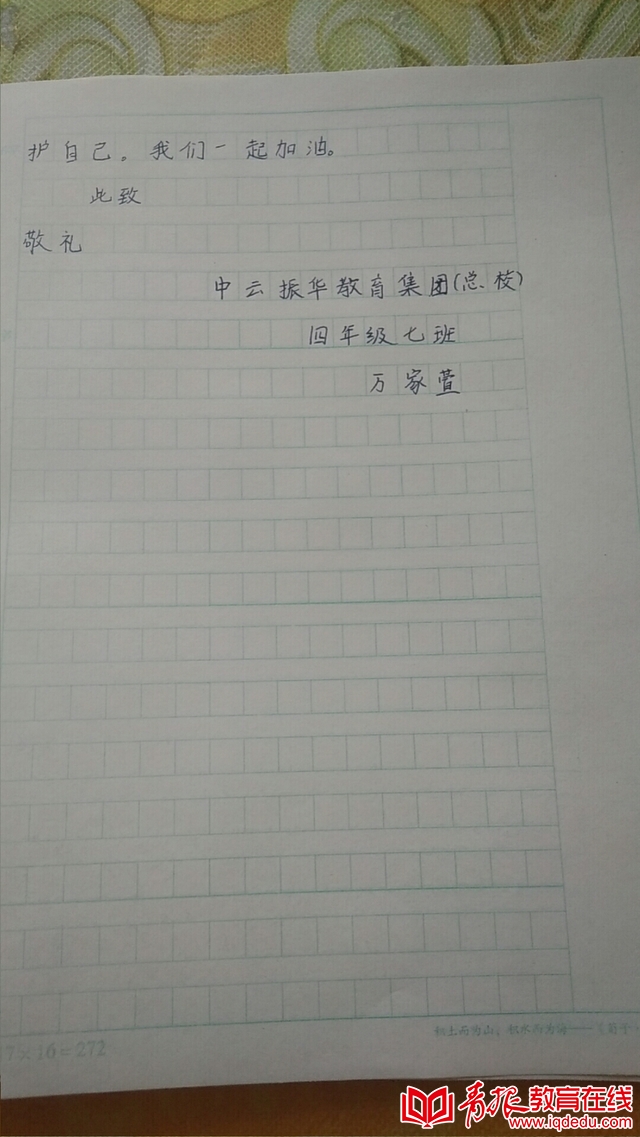 护自己。我们一起加油。
此致
敬礼
中云振华教育集团(总校)
四年级七班
万家萱
17×16=272
积土而为山，积水而为海——《荀子
青报教育在线
www.iqdedu.com